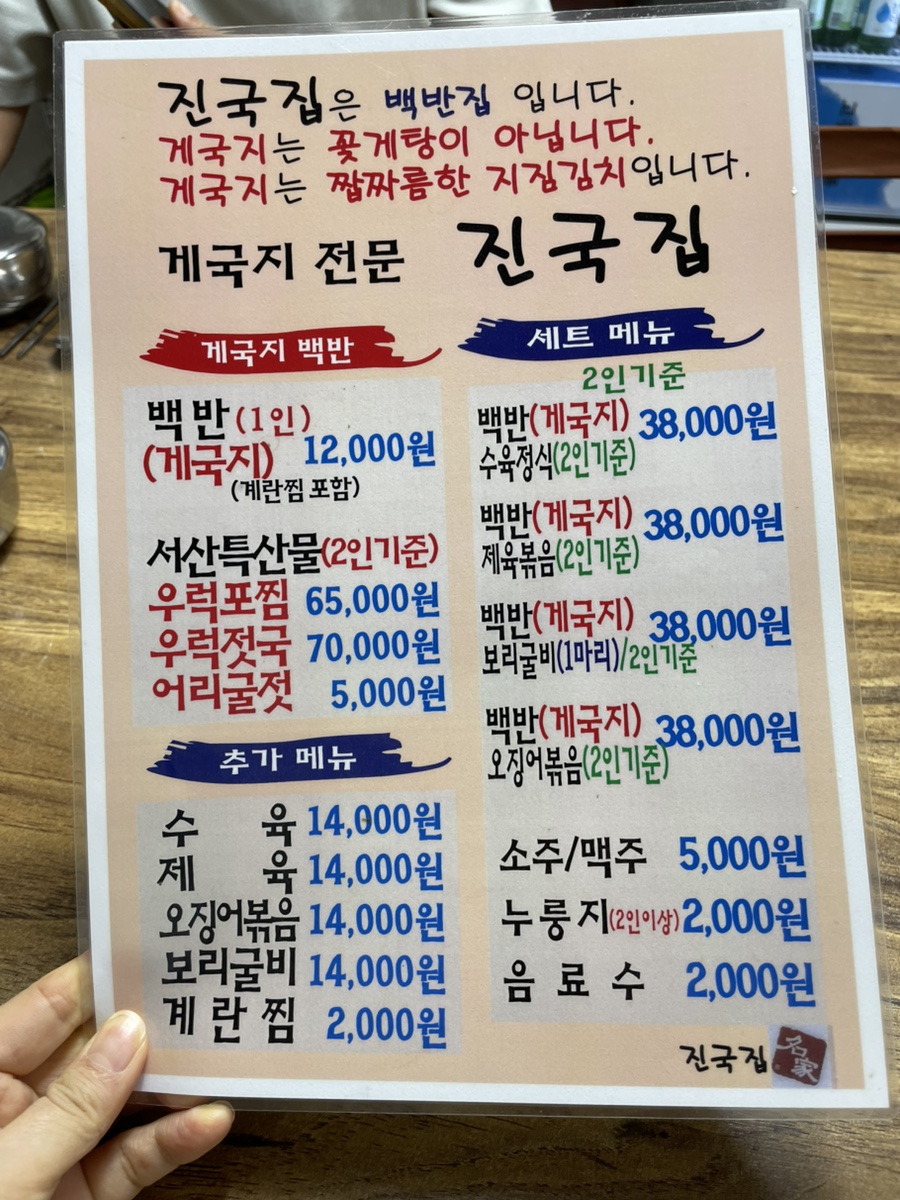 진국집은 백반집 입니다.
게국지는 꽃게탕이 아닙니다.
게국지는 짭짜름한 지짐김치입니다.
게국지 전문 진국집
게국지 백반
백반(1인)
(게국지) 12,000원
(계란찜 포함)
서산특산물(2인기준)
우럭포찜 65,000원
우럭젓국 70,000원
어리굴젓 5,000원
추가 메뉴
수 육 14,000원
제 육 14,000원
오징어볶음 14,000원
보리굴비 14,000원
계 란 찜 2,000원
세트 메뉴
2인기준
백반(게국지) 38,000원
수육정식(2인기준)
백반(게국지) 38,000원
제육볶음(2인기준)
백반(게국지) 38,000원
보리굴비(1마리)/2인기준
백반(게국지) 38,000원
오징어볶음(2인기준)
소주/맥주 5,000원
누룽지(2인이상) 2,000원
음 료 수 2,000원
진국집 名家